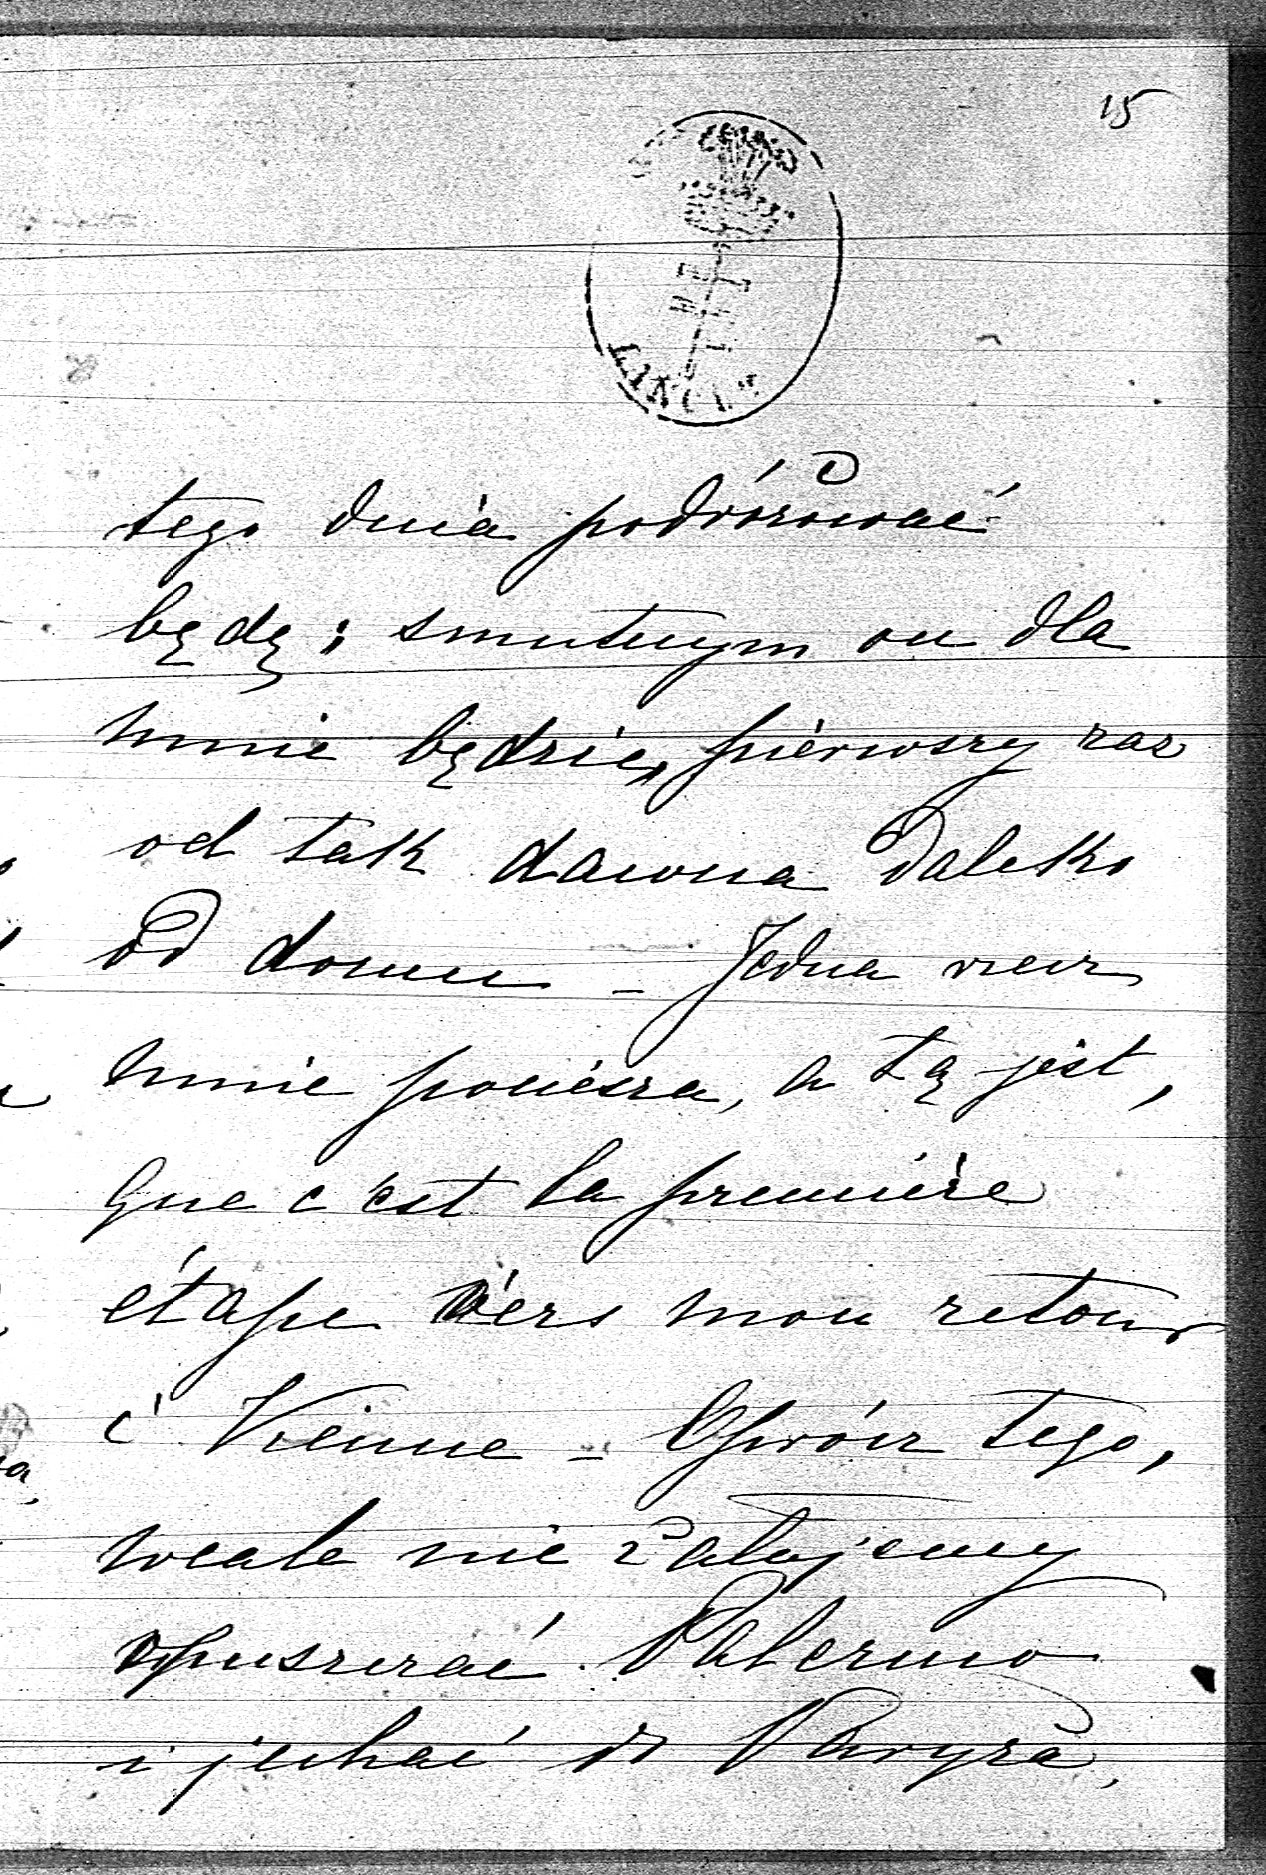 15
tego dnia podróżować
będę; smutnym on dla
mnie będzie, pierwszy raz
od tak dawna daleko
od domu – Jedna rzecz
mnie pociesza, a tą jest,
que c'est la première
étape vers mon retour
à Vienne – Oprócz tego,
wcale nie żałujemy
opuszczać Palermo
i jechać do Paryża,